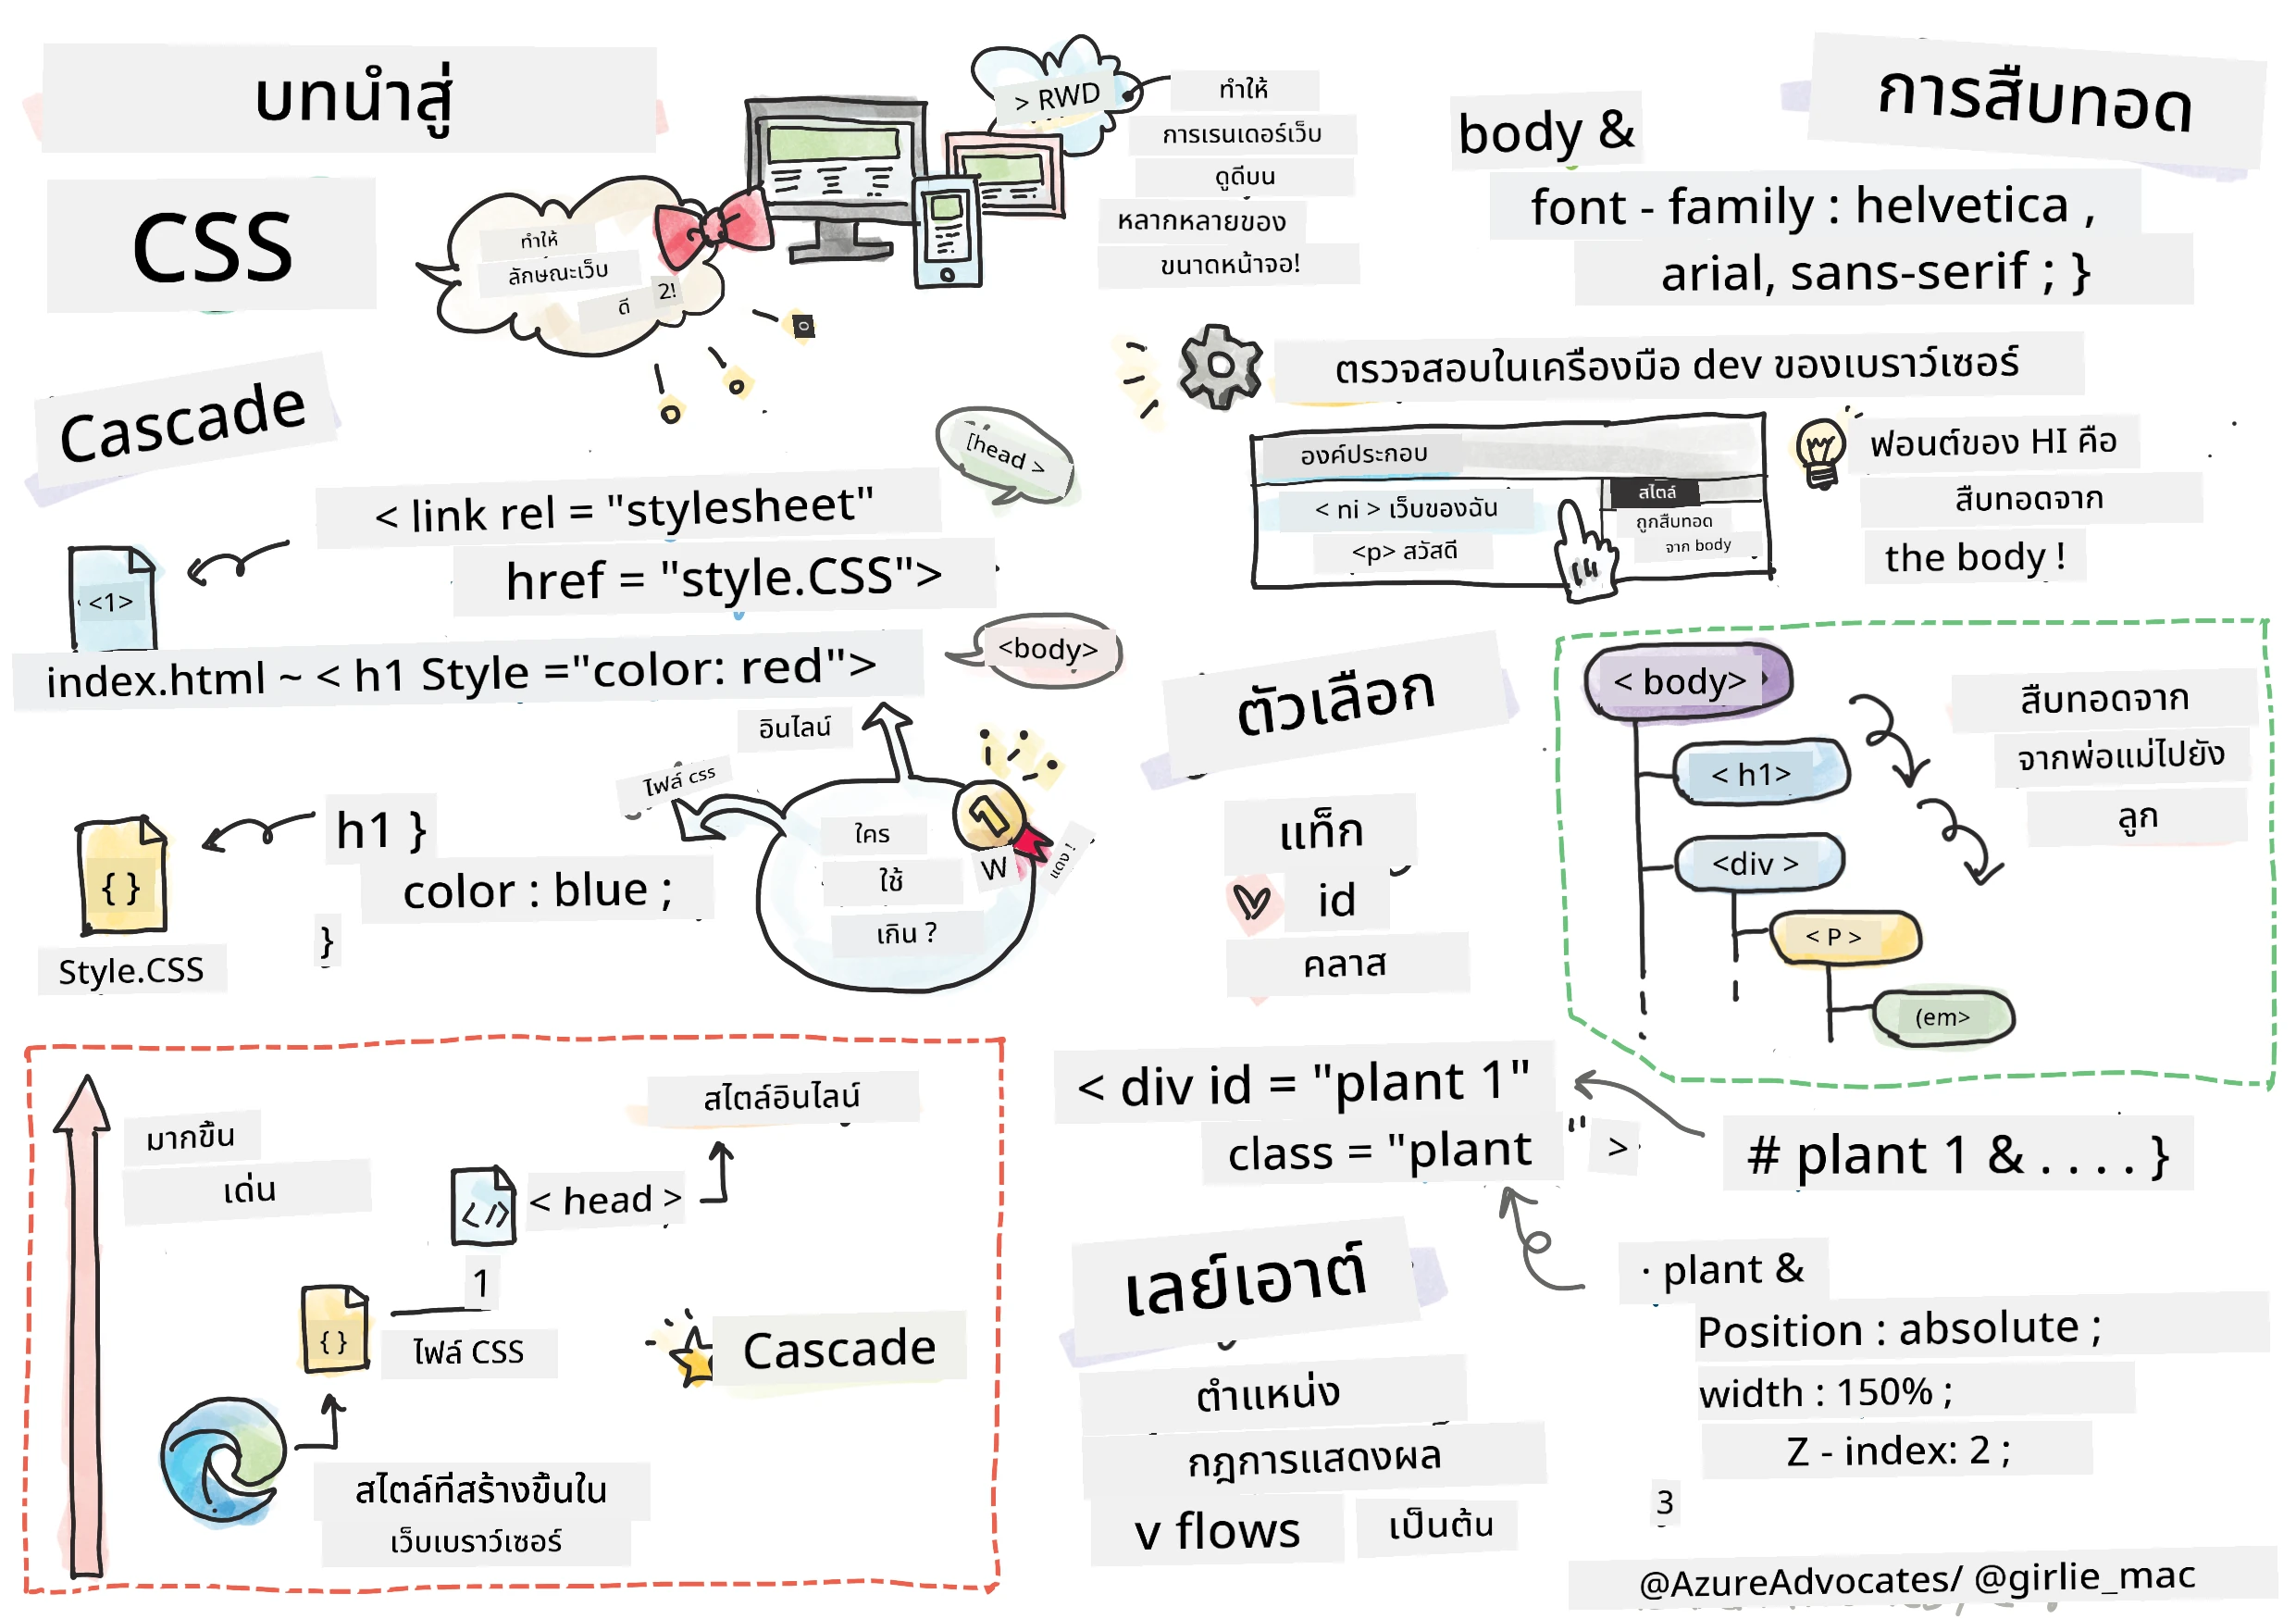 บทนำสู่
CSS
ทำให้
ลักษณะเว็บ
ดี 2!
> RWD
ทำให้
การเรนเดอร์เว็บ
ดูดีบน
หลากหลายของ
ขนาดหน้าจอ!
Cascade
[head >
< link rel = "stylesheet"
href = "style.CSS">
<1>
index.html ~ < h1 Style ="color: red">
<body>
อินไลน์
ไฟล์ css
h1 }
color : blue ;
}
{ }
Style.CSS
ใคร
ใช้
เกิน ?
1
W
แดง !
มากขึ้น
เด่น
สไตล์อินไลน์
</>
< head >
1
{ }
ไฟล์ CSS
Cascade
สไตล์ที่สร้างขึ้นใน
เว็บเบราว์เซอร์
การสืบทอด
body &
font - family : helvetica ,
arial, sans-serif ; }
ตรวจสอบในเครื่องมือ dev ของเบราว์เซอร์
องค์ประกอบ
< ni > เว็บของฉัน
<p> สวัสดี
สไตล์
ถูกสืบทอด
จาก body
ฟอนต์ของ HI คือ
สืบทอดจาก
the body !
ตัวเลือก
แท็ก
id
คลาส
< body>
< h1>
<div >
< P >
(em>
สืบทอดจาก
จากพ่อแม่ไปยัง
ลูก
< div id = "plant 1"
class = "plant " >
# plant 1 & . . . . }
เลย์เอาต์
ตำแหน่ง
กฎการแสดงผล
v flows เป็นต้น
· plant &
Position : absolute ;
width : 150% ;
Z - index: 2 ;
3
@AzureAdvocates/ @girlie_mac